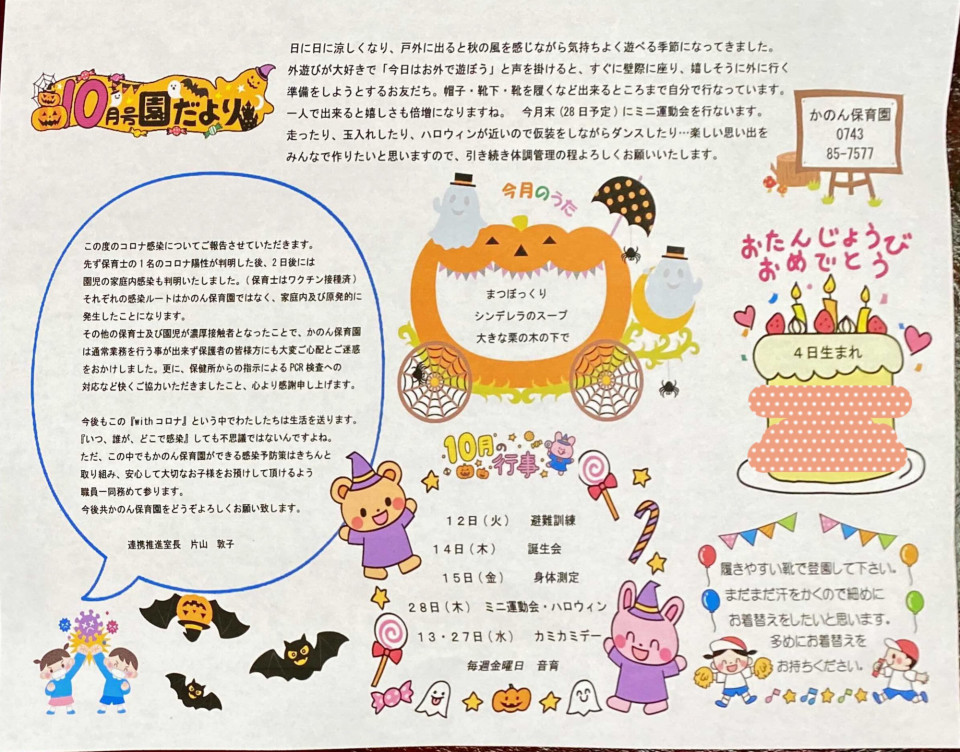 10月号園だより
日に日に涼しくなり、戸外に出ると秋の風を感じながら気持ちよく遊べる季節になってきました。
外遊びが大好きで「今日はお外で遊ぼう」と声を掛けると、すぐに壁際に座り、嬉しそうに外に行く
準備をしようとするお友だち。帽子・靴下・靴を履くなど出来るところまで自分で行なっています。
一人で出来ると嬉しさも倍増になりますね。 今月末(28日予定)にミニ運動会を行ないます。
走ったり、玉入れしたり、ハロウィンが近いので仮装をしながらダンスしたり…楽しい思い出を
みんなで作りたいと思いますので、引き続き体調管理の程よろしくお願いいたします。
かのん保育園
0743
85-7577
この度のコロナ感染についてご報告させていただきます。
先ず保育士の1名のコロナ陽性が判明した後、2日後には
園児の家庭内感染も判明いたしました。(保育士はワクチン接種済)
それぞれの感染ルートはかのん保育園ではなく、家庭内及び原発的に
発生したことになります。
その他の保育士及び園児が濃厚接触者となったことで、かのん保育園
は通常業務を行う事が出来ず保護者の皆様方にも大変ご心配とご迷惑
をおかけしました。更に、保健所からの指示によるPCR検査への
対応など快くご協力いただきましたこと、心より感謝申し上げます。
今後もこの『withコロナ』という中でわたしたちは生活を送ります。
『いつ、誰が、どこで感染』しても不思議ではないんですよね。
ただ、この中でもかのん保育園ができる感染予防策はきちんと
取り組み、安心して大切なお子様をお預けして頂けるよう
職員一同務めて参ります。
今後共かのん保育園をどうぞよろしくお願い致します。
連携推進室長 片山 敦子
今月のうた
まつぼっくり
シンデレラのスープ
大きな栗の木の下で
おたんじょうび
おめでとう
4日生まれ
10月の
行事
12日(火) 避難訓練
14日(木) 誕生会
15日(金) 身体測定
28日(木) ミニ運動会・ハロウィン
13・27日(水) カミカミデー
毎週金曜日 音育
履きやすい靴で登園して下さい。
まだまだ汗をかくので細めに
お着替えをしたいと思います。
多めにお着替えを
お持ちください。